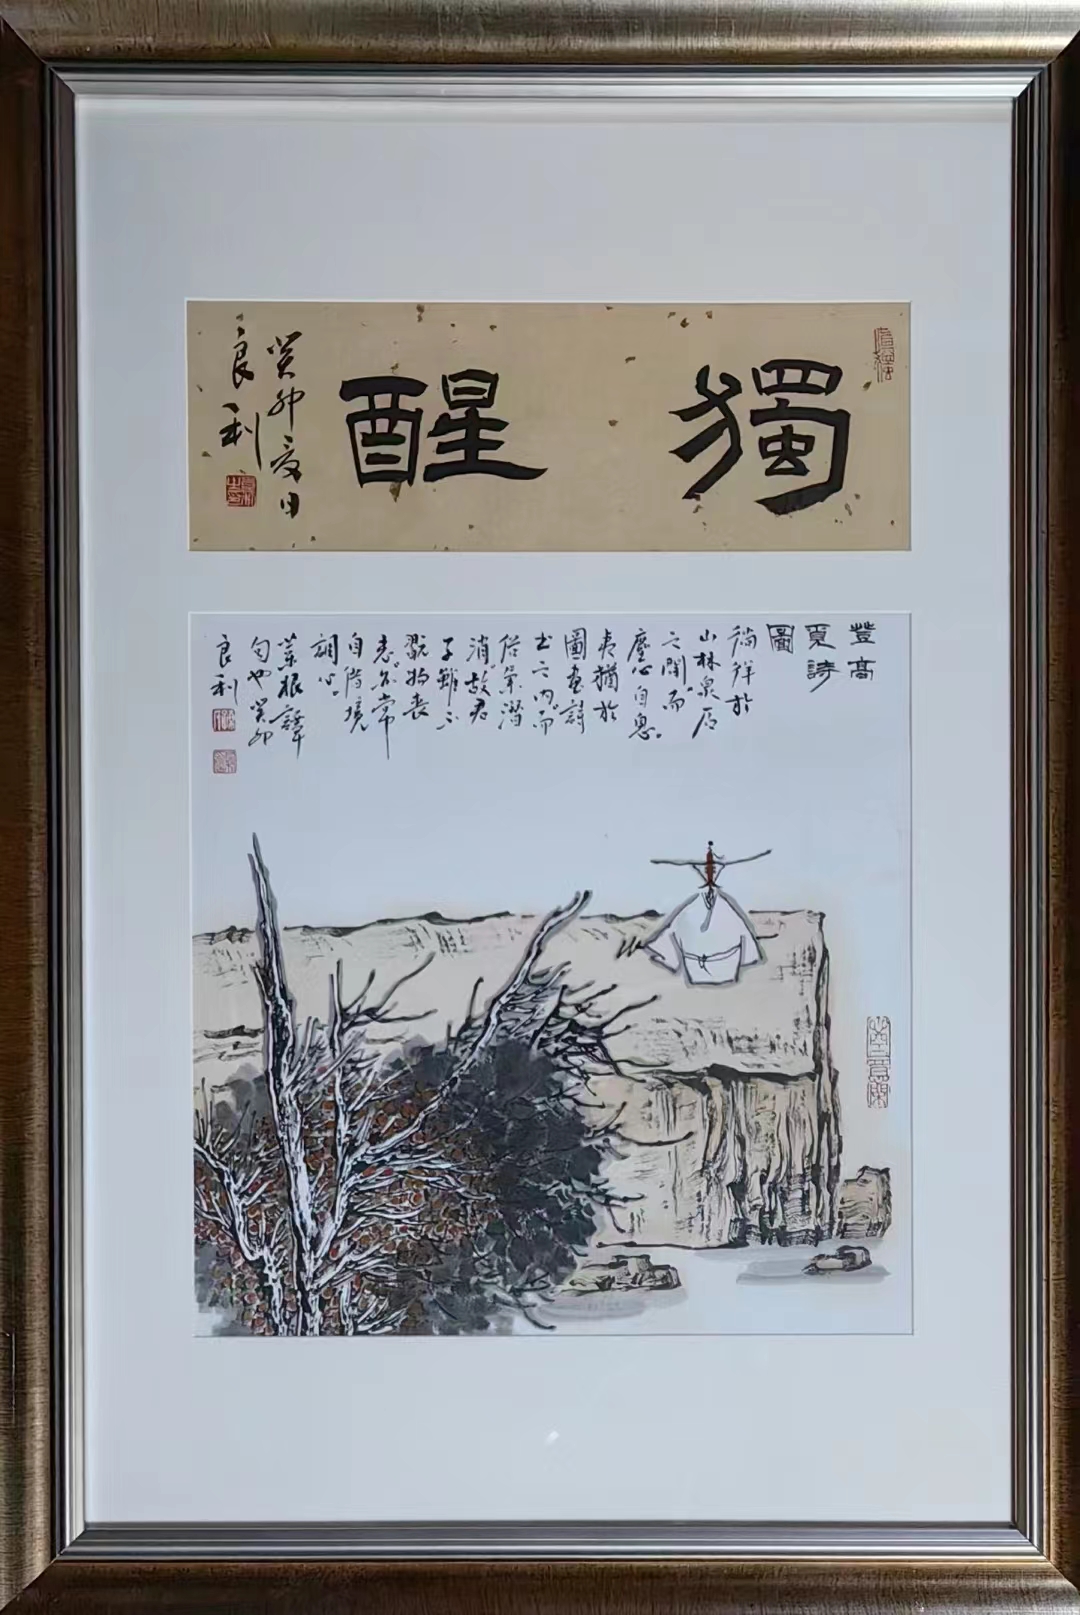 獨醒
癸卯夏日
良利
登高
覓詩
圖
徜徉於
山林泉石
之間而
塵心自息
夷猶於
圖畫詩
書之內而
俗氣潛
消故君
子雖不
翫物喪
志亦常
自借境
調心
菜根譚
句也癸卯
良利